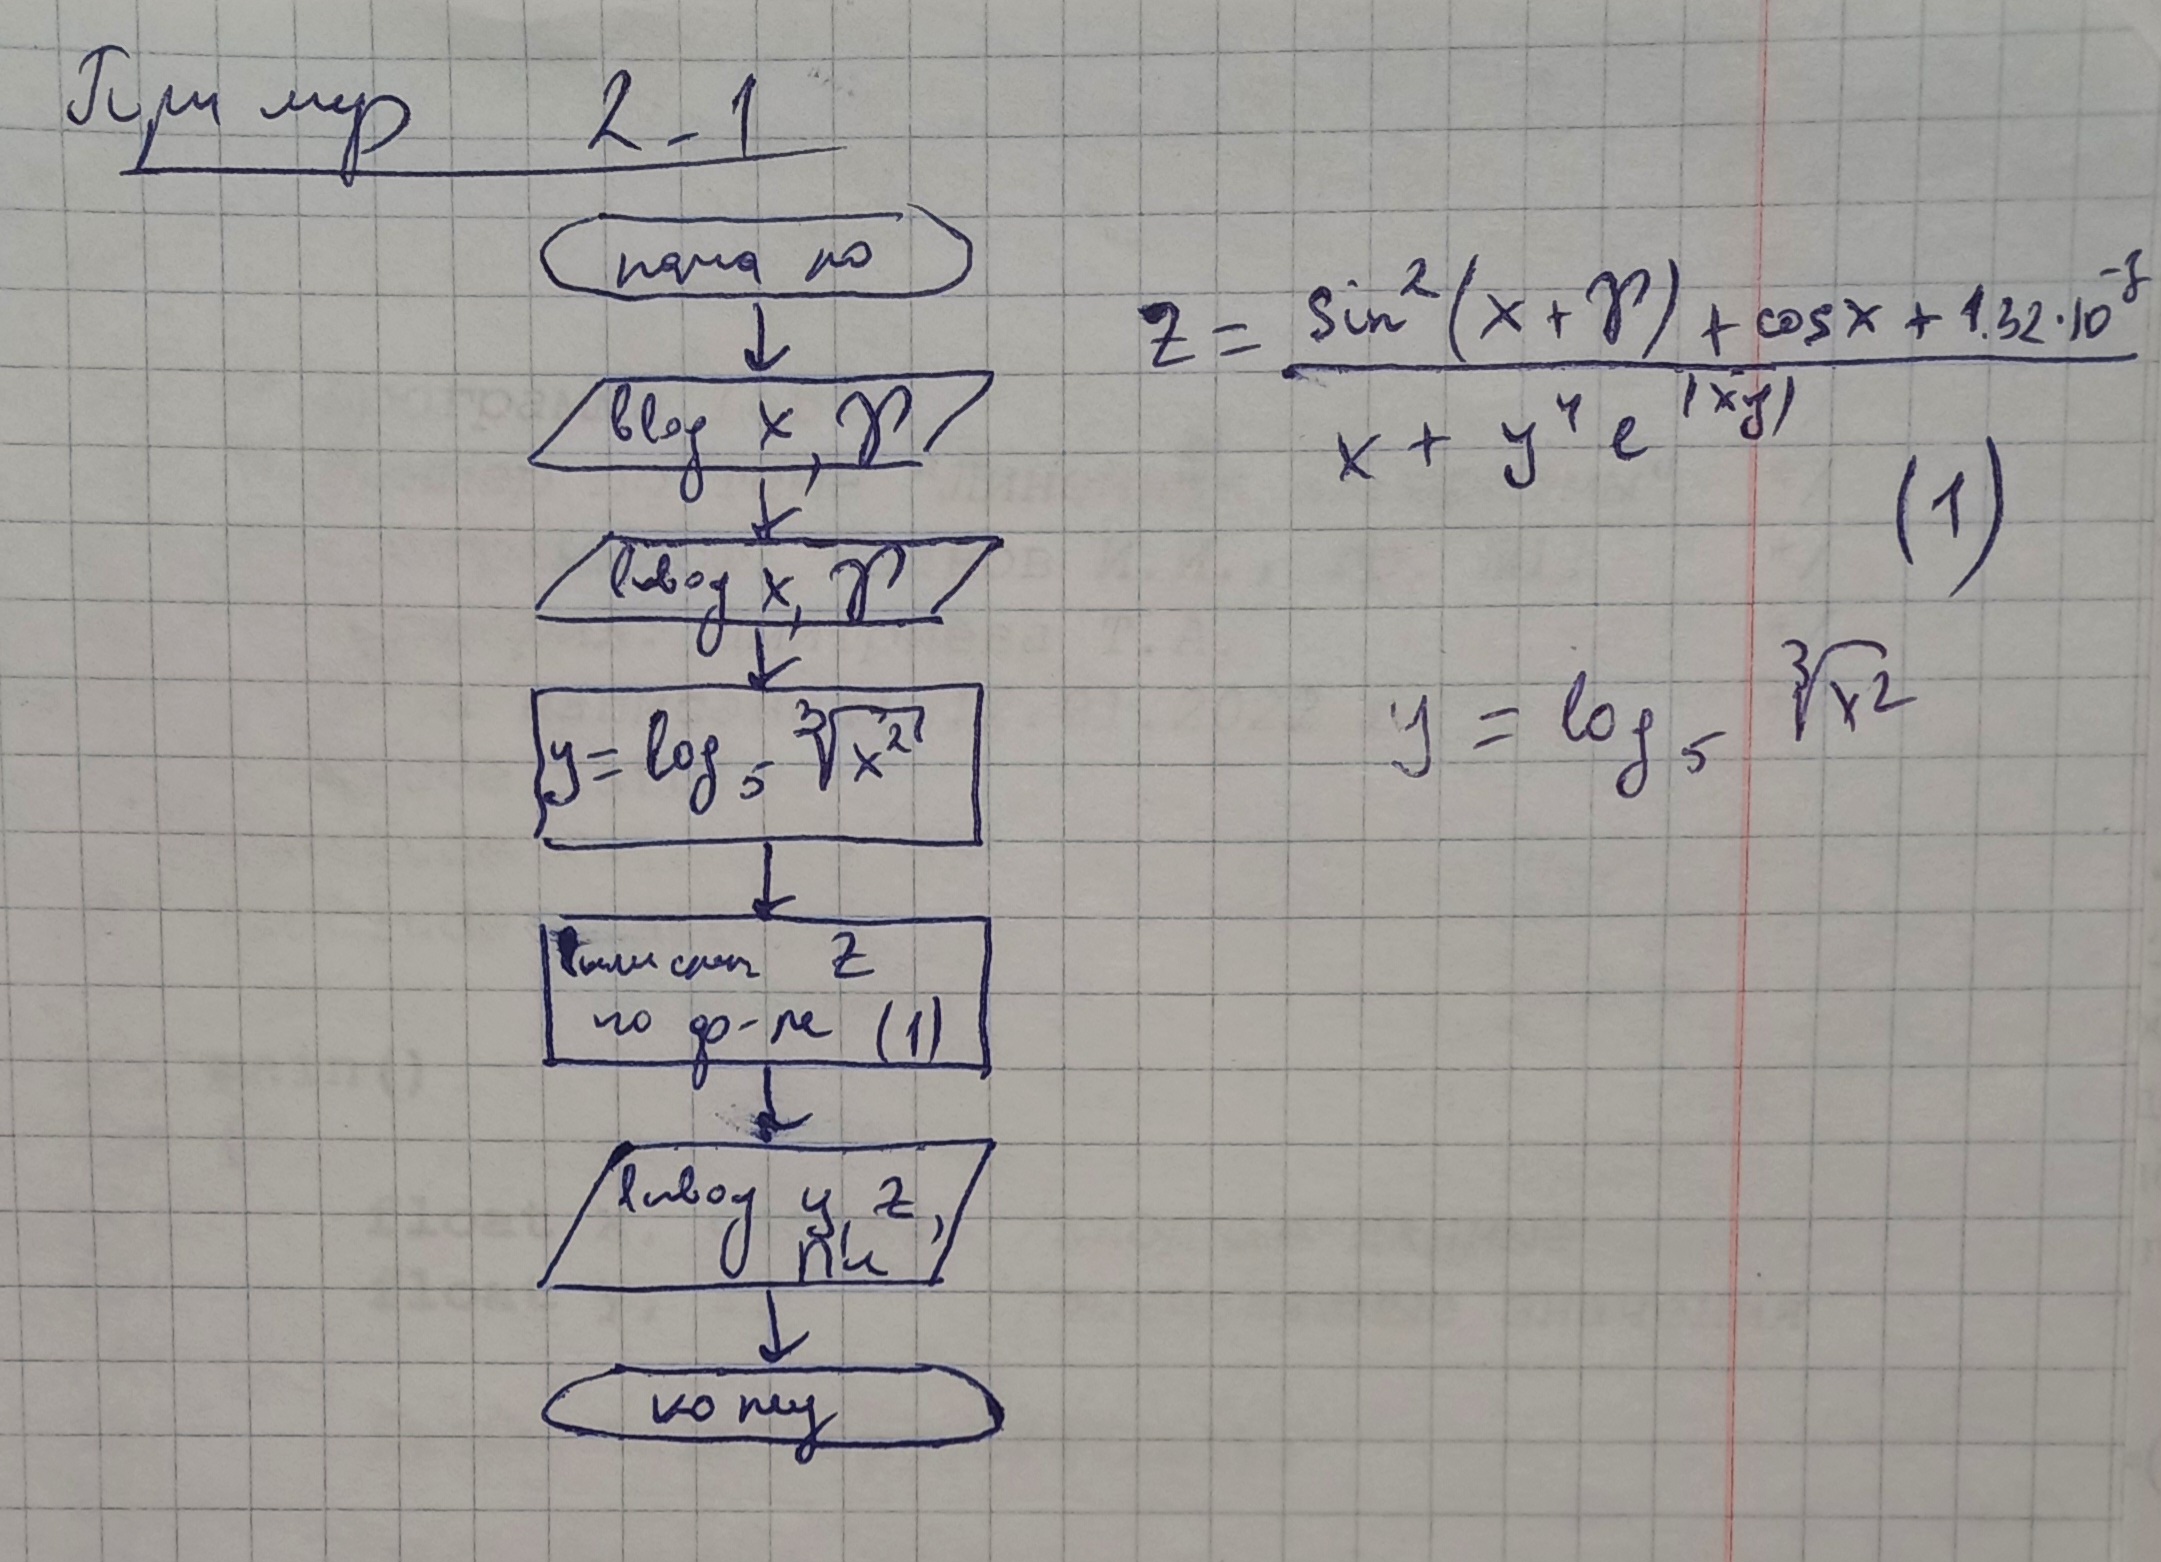 Пример 2-1
начало
ввод x, γ
вывод x, γ
y = log₅ ∛x²
вычислить z
по ф-ле (1)
вывод y, z,
конец
z = (sin²(x + γ) + cos x + 1.32·10⁻³) / (x + y⁴ e^|xy|)
(1)
y = log₅ ∛x²